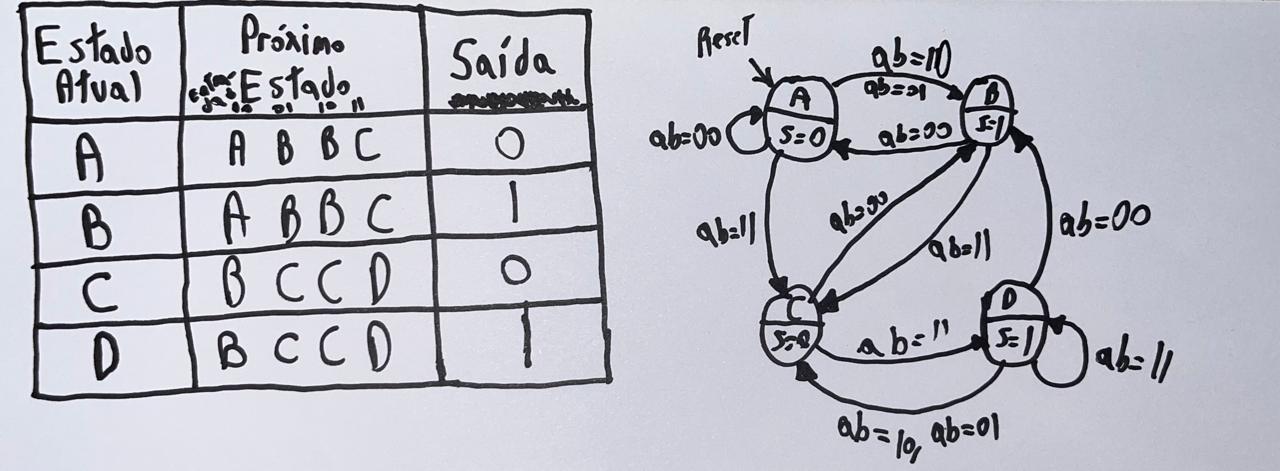 Estado
Atual
Próximo
Estado
01 10 11
Saída
A
A B B C
0
B
A B B C
1
C
B C C D
0
D
B C C D
1
Reset
ab=10
ab=01
A
S=0
B
S=1
ab=00
ab=00
ab=11
ab=00
ab=11
ab=00
C
S=0
D
S=1
ab=11
ab=11
ab=10, ab=01